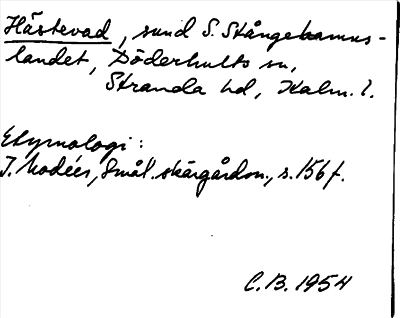 Hästevad, sund S. Stångehamns-
landet, Döderhults sn,
Stranda hd, Kalm. l.
Etymologi:
J. Modéer, Smål. skärgårdsn., s. 156 f.
C.B. 1954